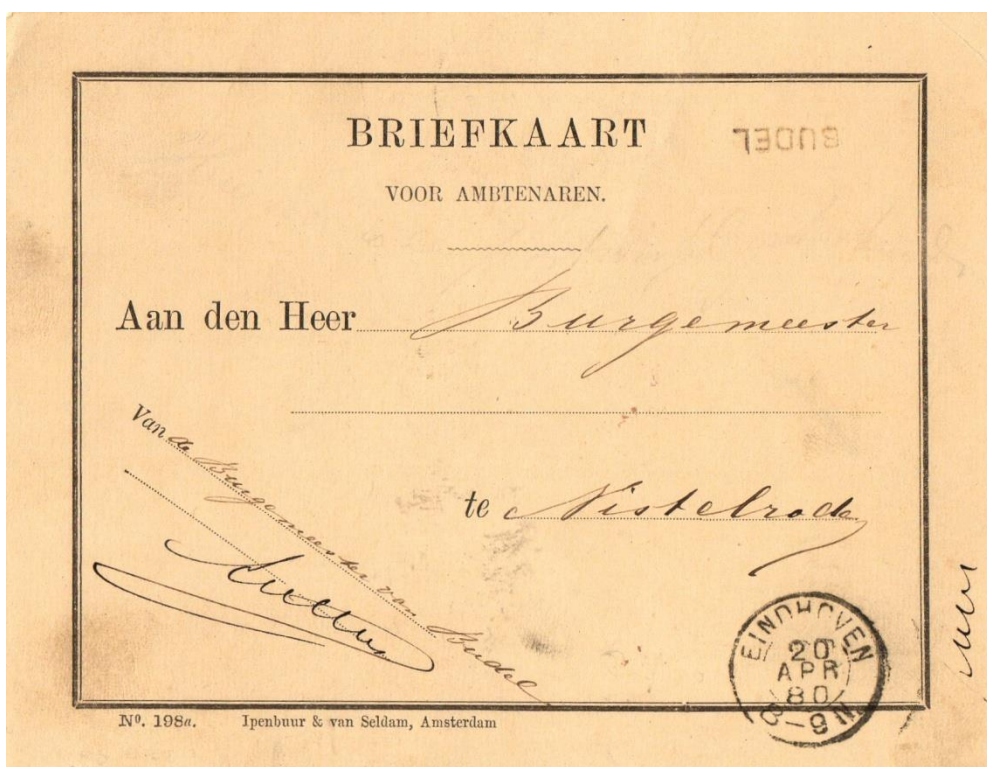 BRIEFKAART
BUDEL
VOOR AMBTENAREN.
Aan den Heer Burgemeester
Van de Burgemeester van Budel
te Nistelrode
EINDHOVEN
20
APR
80
8-9N
Nº. 198a. Ipenbuur & van Seldam, Amsterdam